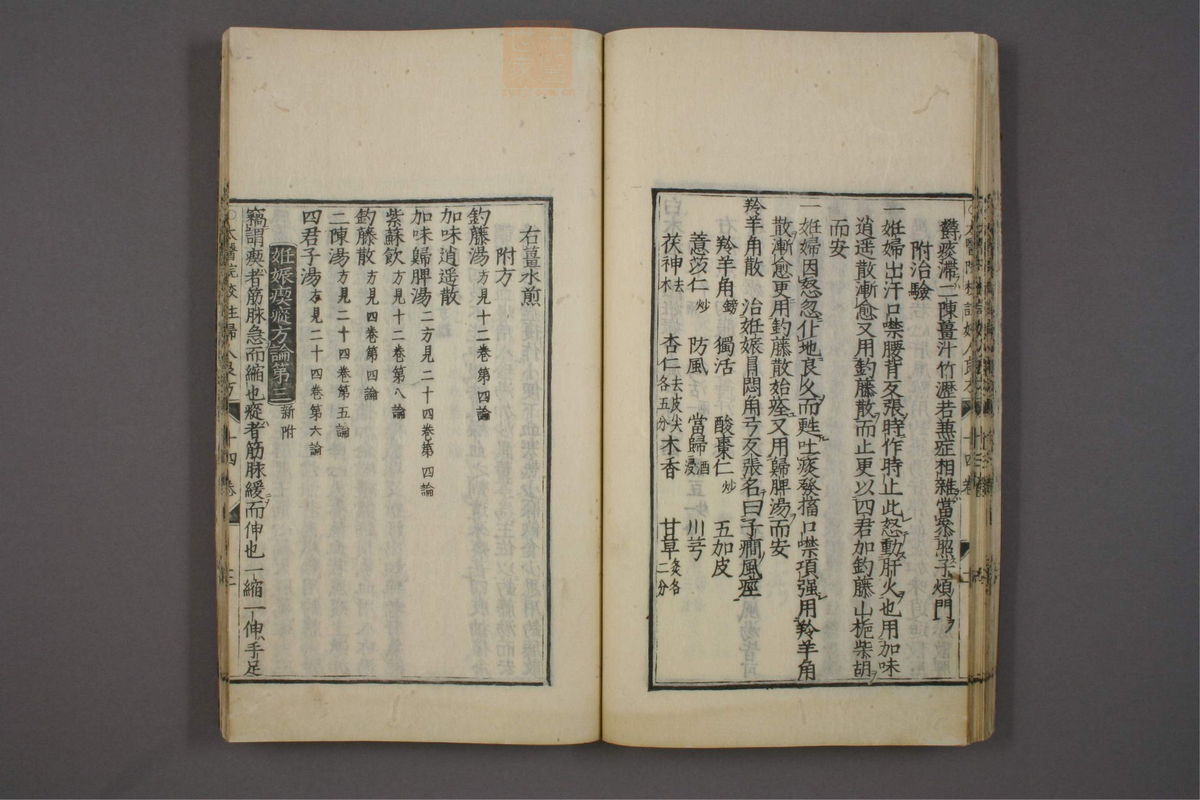 欝痰滯二陳薑汁竹瀝若兼症相雜當叅照子煩門
附治驗
一妊婦出汗口噤腰背反張時作時止此怒動肝火也用加味
逍遥散漸愈又用釣藤散而止更以四君加釣藤山梔柴胡
而安
一妊婦因怒忽仆地良久而甦吐痰發搐口噤項强用羚羊角
散漸愈更用釣藤散始痊又用歸脾湯而安
羚羊角散 治妊娠冒悶角弓反張名曰子癎風痙
羚羊角鎊 獨活 酸棗仁炒 五加皮
薏苡仁炒 防風 當歸酒浸 川芎
茯神去木 杏仁去皮尖各五分 木香 甘草炙各二分
右薑水煎
附方
釣藤湯方見十二卷第四論
加味逍遥散
加味歸脾湯二方見二十四卷第四論
紫蘇飲方見十二卷第八論
釣藤散方見四卷第四論
二陳湯方見二十四卷第五論
四君子湯方見二十四卷第六論
妊娠瘈瘲方論第三 新附
竊謂瘈者筋脉急而縮也瘲者筋脉緩而伸也一縮一伸手足
十四卷 三